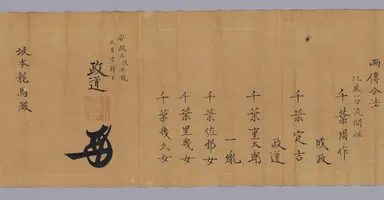 北辰一刀流開祖
千葉周作
成政
千葉定吉
政道
千葉重太郎
一胤
千葉佐那女
千葉里幾女
千葉幾久女
安政五戊午
政道
坂本龍馬殿